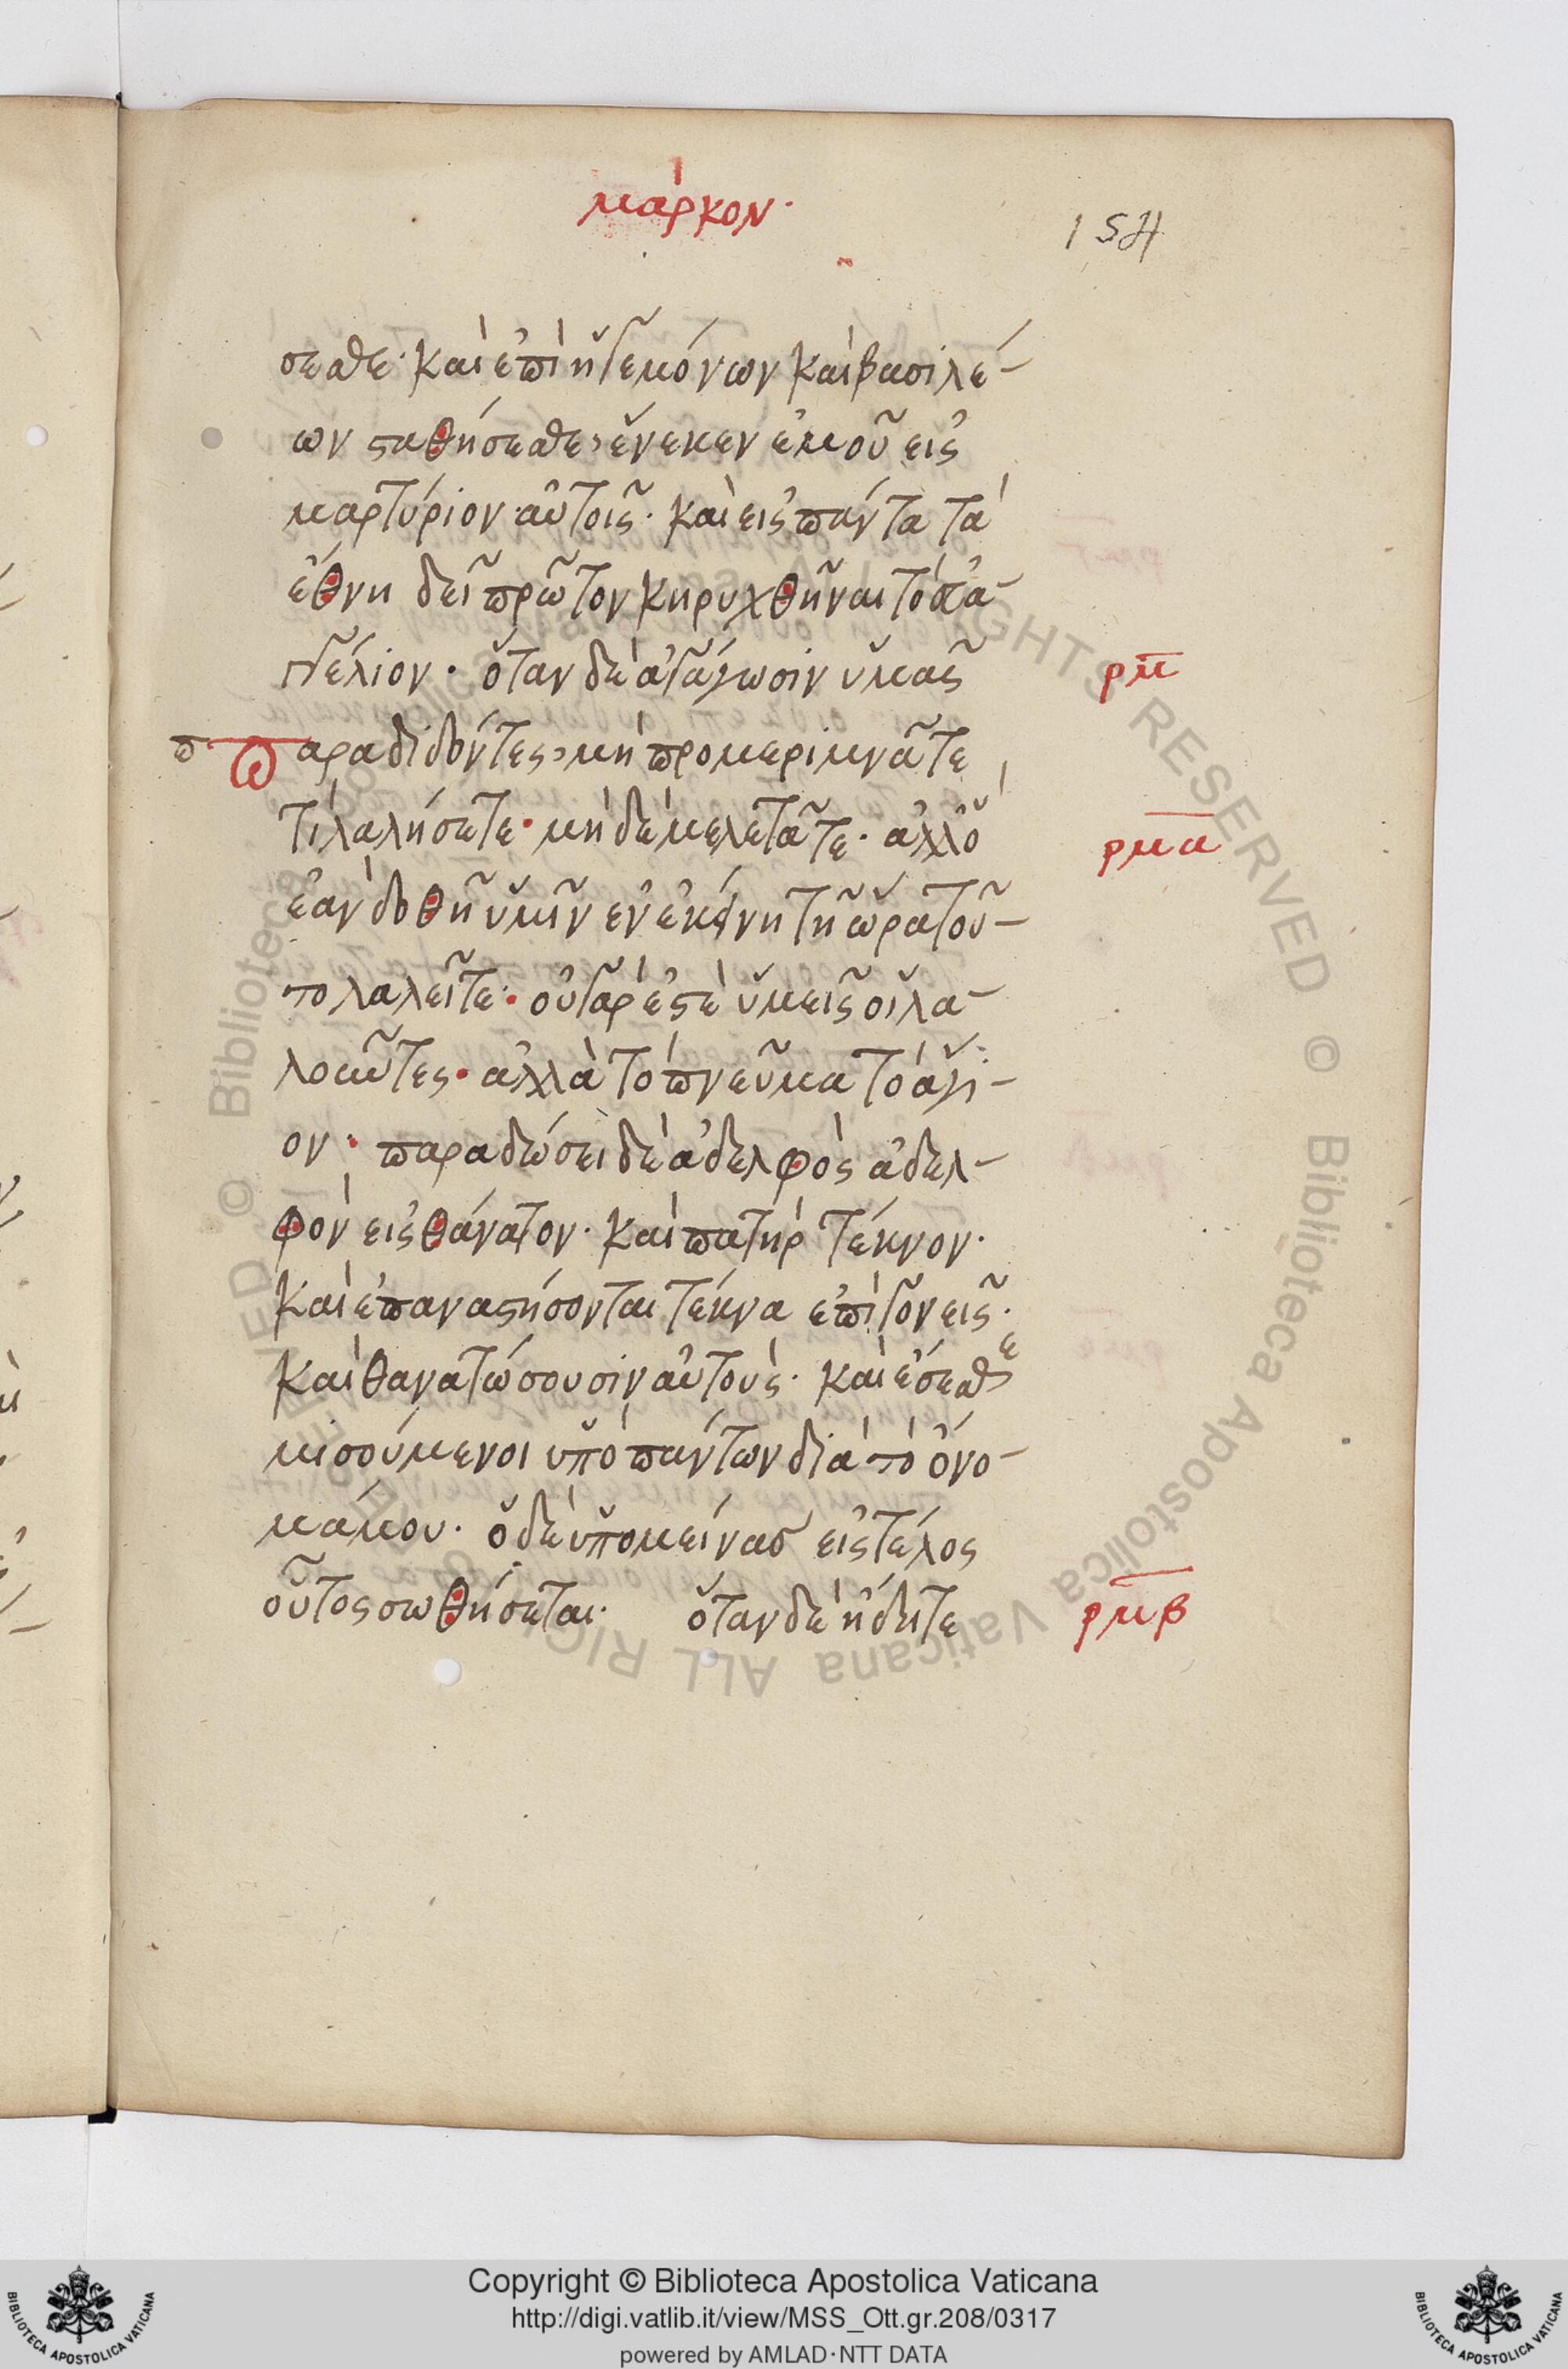 μάρκον·
154
σεσθε· καὶ ἐπὶ ἡγεμόνων καὶ βασιλέ-
ων σταθήσεσθε, ἕνεκεν ἐμοῦ εἰς
μαρτύριον αὐτοῖς· καὶ εἰς πάντα τὰ
ἔθνη δεῖ πρῶτον κηρυχθῆναι τὸ εὐα-
γγέλιον· ὅταν δὲ ἀγάγωσιν ὑμᾶς
ρμ
π παραδιδόντες, μὴ προμεριμνᾶτε
τί λαλήσετε· μὴ δὲ μελετᾶτε· ἀλλ' ὃ
ρμα
ἐὰν δοθῆ ὑμῖν ἐν ἐκείνη τῆ ὥρα τοῦ-
το λαλεῖτε· οὐ γάρ ἐστὲ ὑμεῖς οἱ λα-
λοῦντες· ἀλλὰ τὸ πνεῦμα τὸ ἅγι-
ον· παραδώσει δὲ ἀδελφὸς ἀδελ-
φὸν εἰς θάνατον· καὶ πατὴρ τέκνον·
καὶ ἐπαναστήσονται τέκνα ἐπὶ γονεῖς·
καὶ θανατώσουσιν αὐτοὺς· καὶ ἔσεσθε
μισούμενοι ὑπὸ πάντων διὰ τὸ ὄνο-
μά μου· ὁ δὲ ὑπομείνας εἰς τέλος
οὗτος σωθήσεται· ὅταν δὲ ἤδητε
ρμβ
Copyright © Biblioteca Apostolica Vaticana
http://digi.vatlib.it/view/MSS_Ott.gr.208/0317
powered by AMLAD·NTT DATA